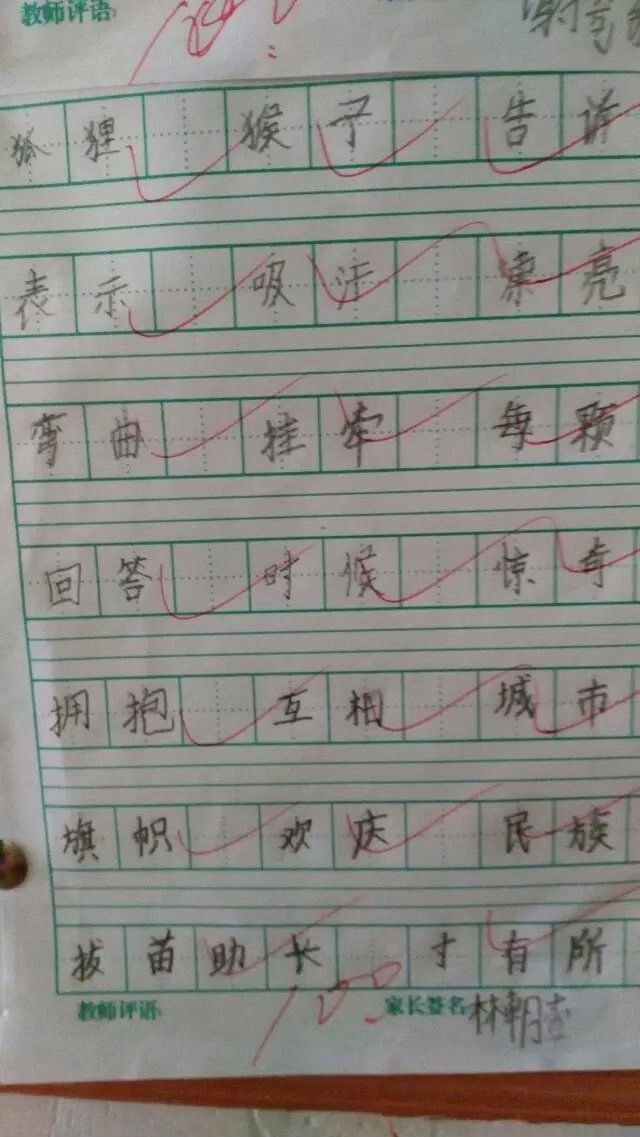 教师评语:
狐狸 猴子 告诉
表示 吸 亮
弯曲 挂牵 每颗
回答 时候 惊奇
拥抱 互相 城市
旗帜 欢庆 民族
拔苗助长 寸有所
教师评语: 100 家长签名: 林朝